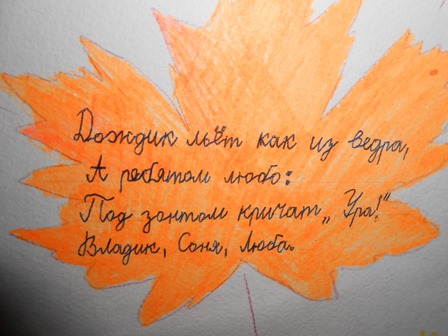 Дождик льёт как из ведра,
А ребятам любо:
Под зонтом кричат „Ура!“
Владик, Соня, Люба.